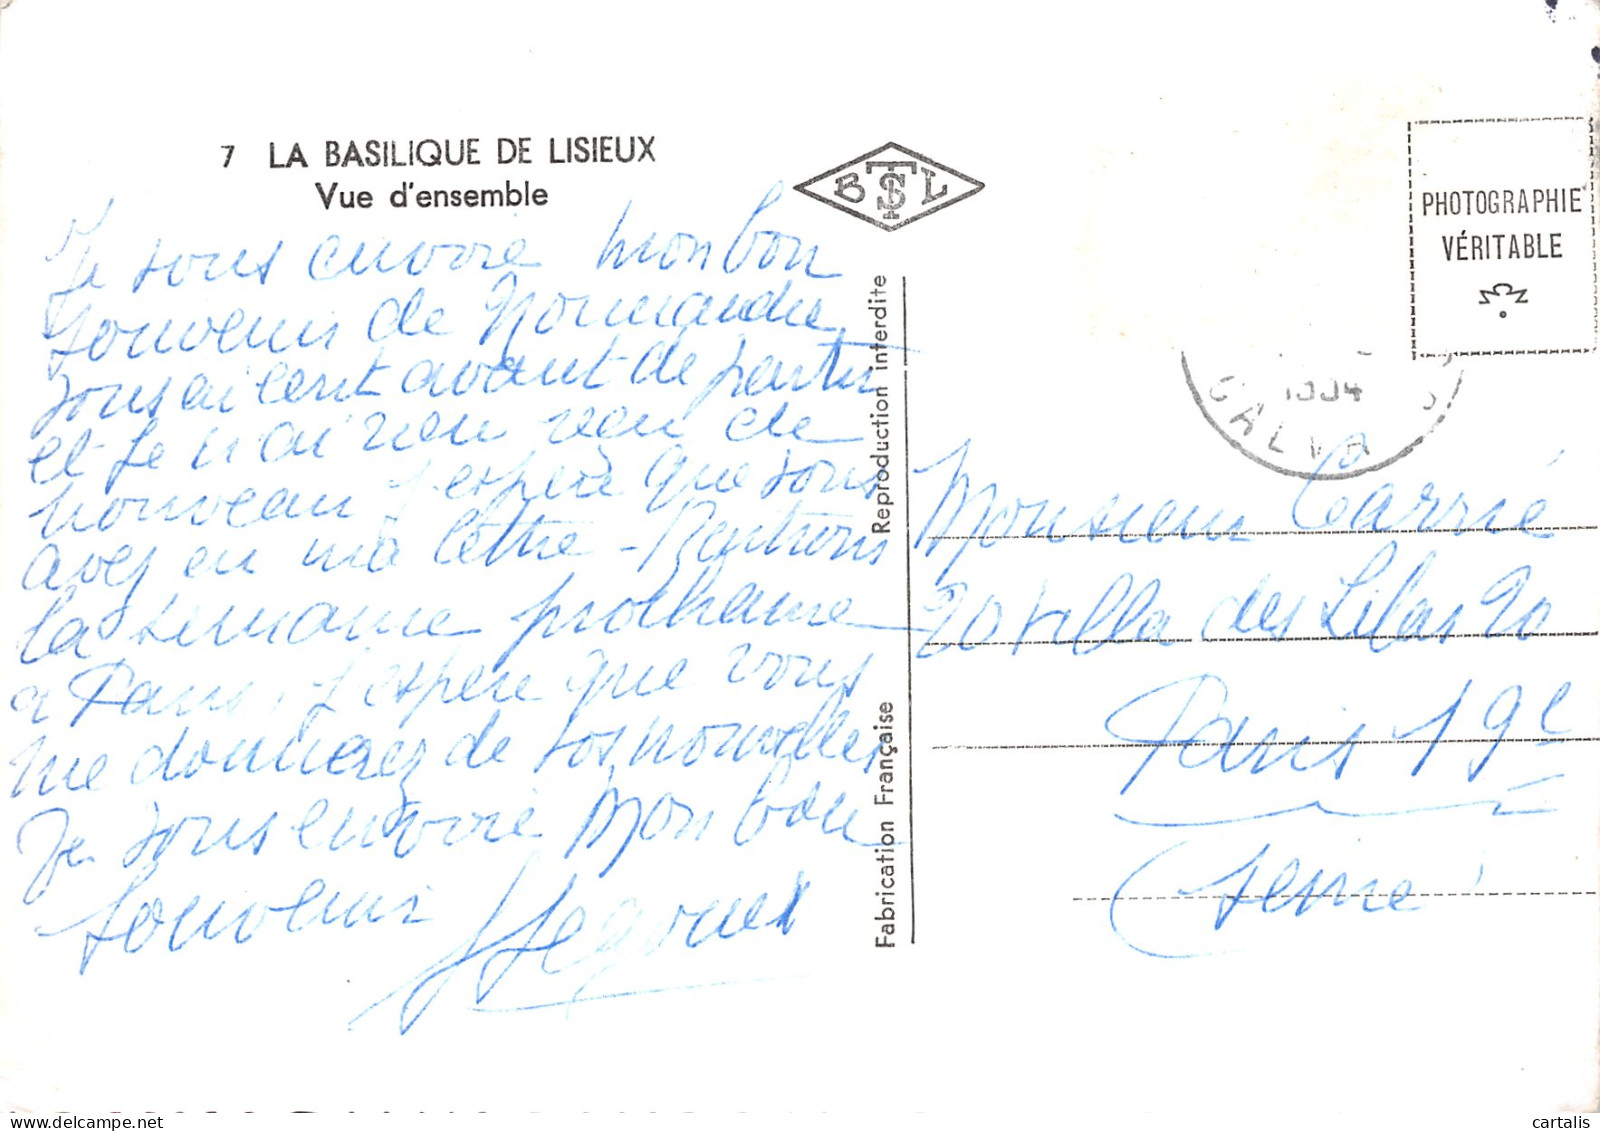 7 LA BASILIQUE DE LISIEUX
Vue d'ensemble
Je vous envoie mon bon
souvenir de Normandie,
vous ai écrit avant de partir
et je n'ai rien reçu de
nouveau j'espère que vous
avez eu ma lettre - Rentrons
la semaine prochaine
a Paris, j'espère que vous
me donnerez de vos nouvelles
Je vous envoie mon bon
souvenir
BTSL
Reproduction interdite
Fabrication Française
PHOTOGRAPHIE
VÉRITABLE
CALVA
Monsieur Carrié
20 Villa des Lilas 20
Paris 19e
Seine
cartalis